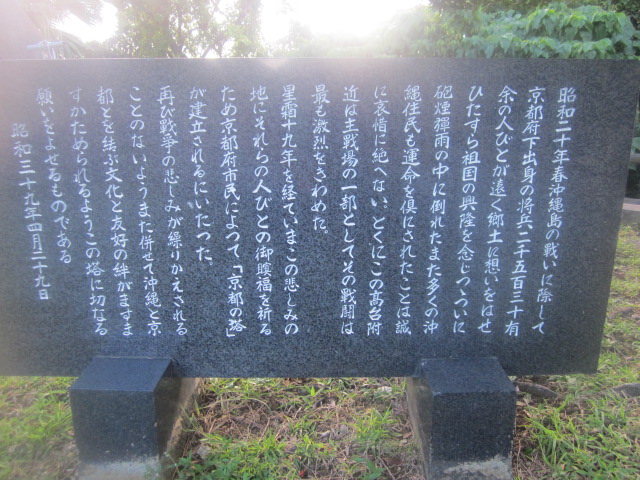 昭和二十年春沖縄島の戦いに際して
京都府下出身の将兵二千五百三十有
余の人びとが遠く郷土に想いをはせ
ひたすら祖国の興隆を念じつつついに
砲煙弾雨の中に倒れたまた多くの沖
縄住民も運命を倶にされたことは誠
に哀惜に絶へない、とくにこの高台附
近は主戦場の一部としてその戦闘は
最も激烈をきわめた、
星霜十九年を経ていまこの悲しみの
地にそれらの人びとの御冥福を祈る
ため京都府市民によつて、「京都の塔」
が建立されるにいたつた、
再び戦争の悲しみが繰りかえされる
ことのないようまた併せて沖縄と京
都とを結ぶ文化と友好の絆がますま
すかためられるようこの塔に切なる
願いをよせるものである
昭和三十九年四月二十九日